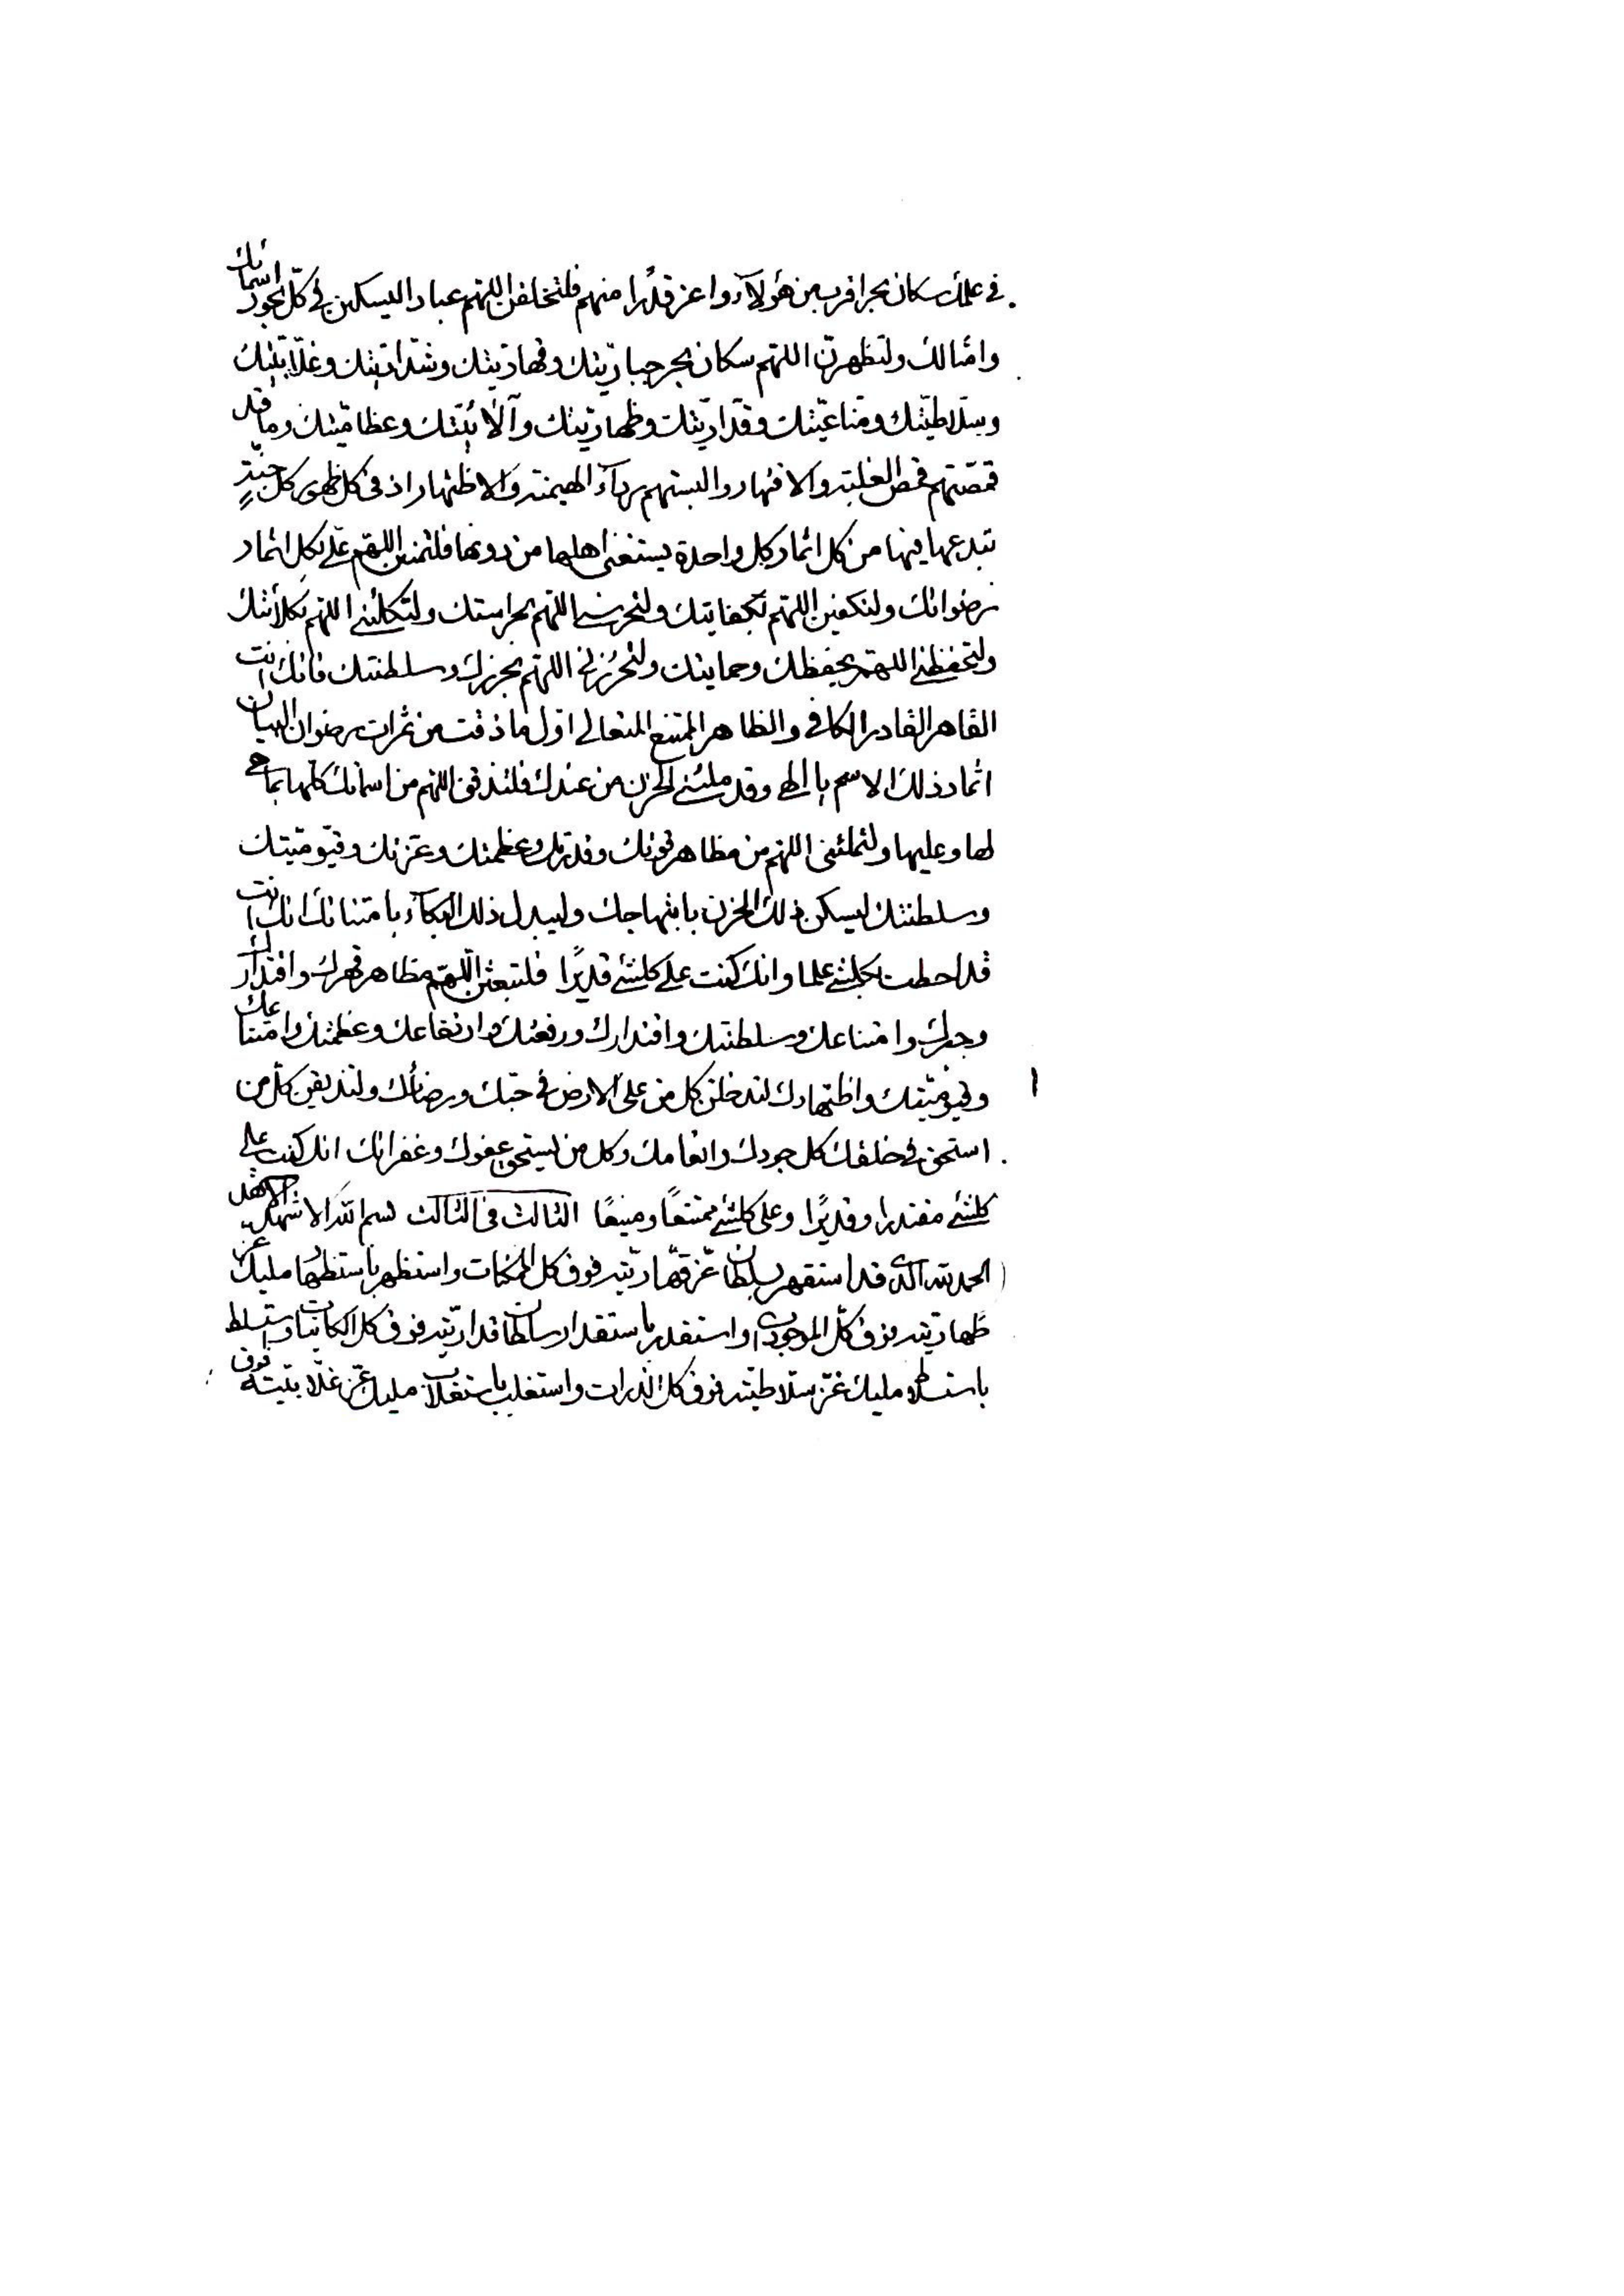 في علمك سكان بحر اقرب من هؤلاء واعز قدرا منهم فلتخلقن اللهم عبادا ليسكنن في كل بحور اسمائك
وامثالك ولتظهرن اللهم سكان بحر جباريتك وقهاريتك وشداديتك وغلابيتك
وسلاطيتك ومناعيتك وقداريتك وظهاريتك وآلائيتك وعظاميتك وما قد
قمصتهم قمص الغلبة والاقتهار والبستهم رداء الهيمنة والاظتهار اذ في كل ظهور كل جنة
تبدعها فيها من كل اثمار وكل واحدة يستغنى اهلها من دونها فلتمنن اللهم علي بكل اثمار
رضوانك ولتكفين اللهم بكفايتك ولتحرسني اللهم بحراستك ولتكلئني اللهم بكلائتك
ولتحفظني اللهم بحفظك وحمايتك ولتحرزني اللهم بحرزك وسلطنتك فانك انت
القاهر القادر الكافي والظاهر الممتنع المتعالي اول ما ذقت من ثمرات رضوان البيان
اثمار ذلك الاسم يا الهي وقد ملئني الحزن من عندك فلتذقن اللهم من اسمائك كلها بما هي
لها وعليها ولتملئني اللهم من مظاهر قوتك وقدرتك وعظمتك وعزتك وقيوميتك
وسلطنتك ليسكن ذلك الحزن بابتهاجك وليبدل ذلك البكاء بامتنانك انك انت
قد احطت بكلشئ علما وانك كنت على كلشئ قديرًا فلتبعثن اللهم مظاهر قهرك واقتدارك
وجبرك وامتناعك وسلطنتك واقتدارك ورفعتك وارتفاعك وعظمتك وامتناعك
وقيوميتك واظتهارك لتدخلن كل من على الارض في حبك ورضائك ولتذيقن كل من
استحق في خلقك كل جودك وانعامك وكل من يستحق عفوك وغفرانك انك كنت على
كلشئ مقتدرا وقديرًا وعلى كلشئ ممتنعًا ومنيعًا الثالث في الثالث بسم الله الاشهد الاشهد
الحمد لله الذي قد استقهر بسلطان عز قهاريته فوق كل الممكنات واستظهر باستظهار مليك عز
ظهاريته فوق كل الموجودات واستقدر باستقدار سلطان قداريته فوق كل الكائنات واستسلط
باستسلاط مليك عز سلاطيته فوق كل الذرات واستغلب باستغلاب مليك عز غلابيته فوق